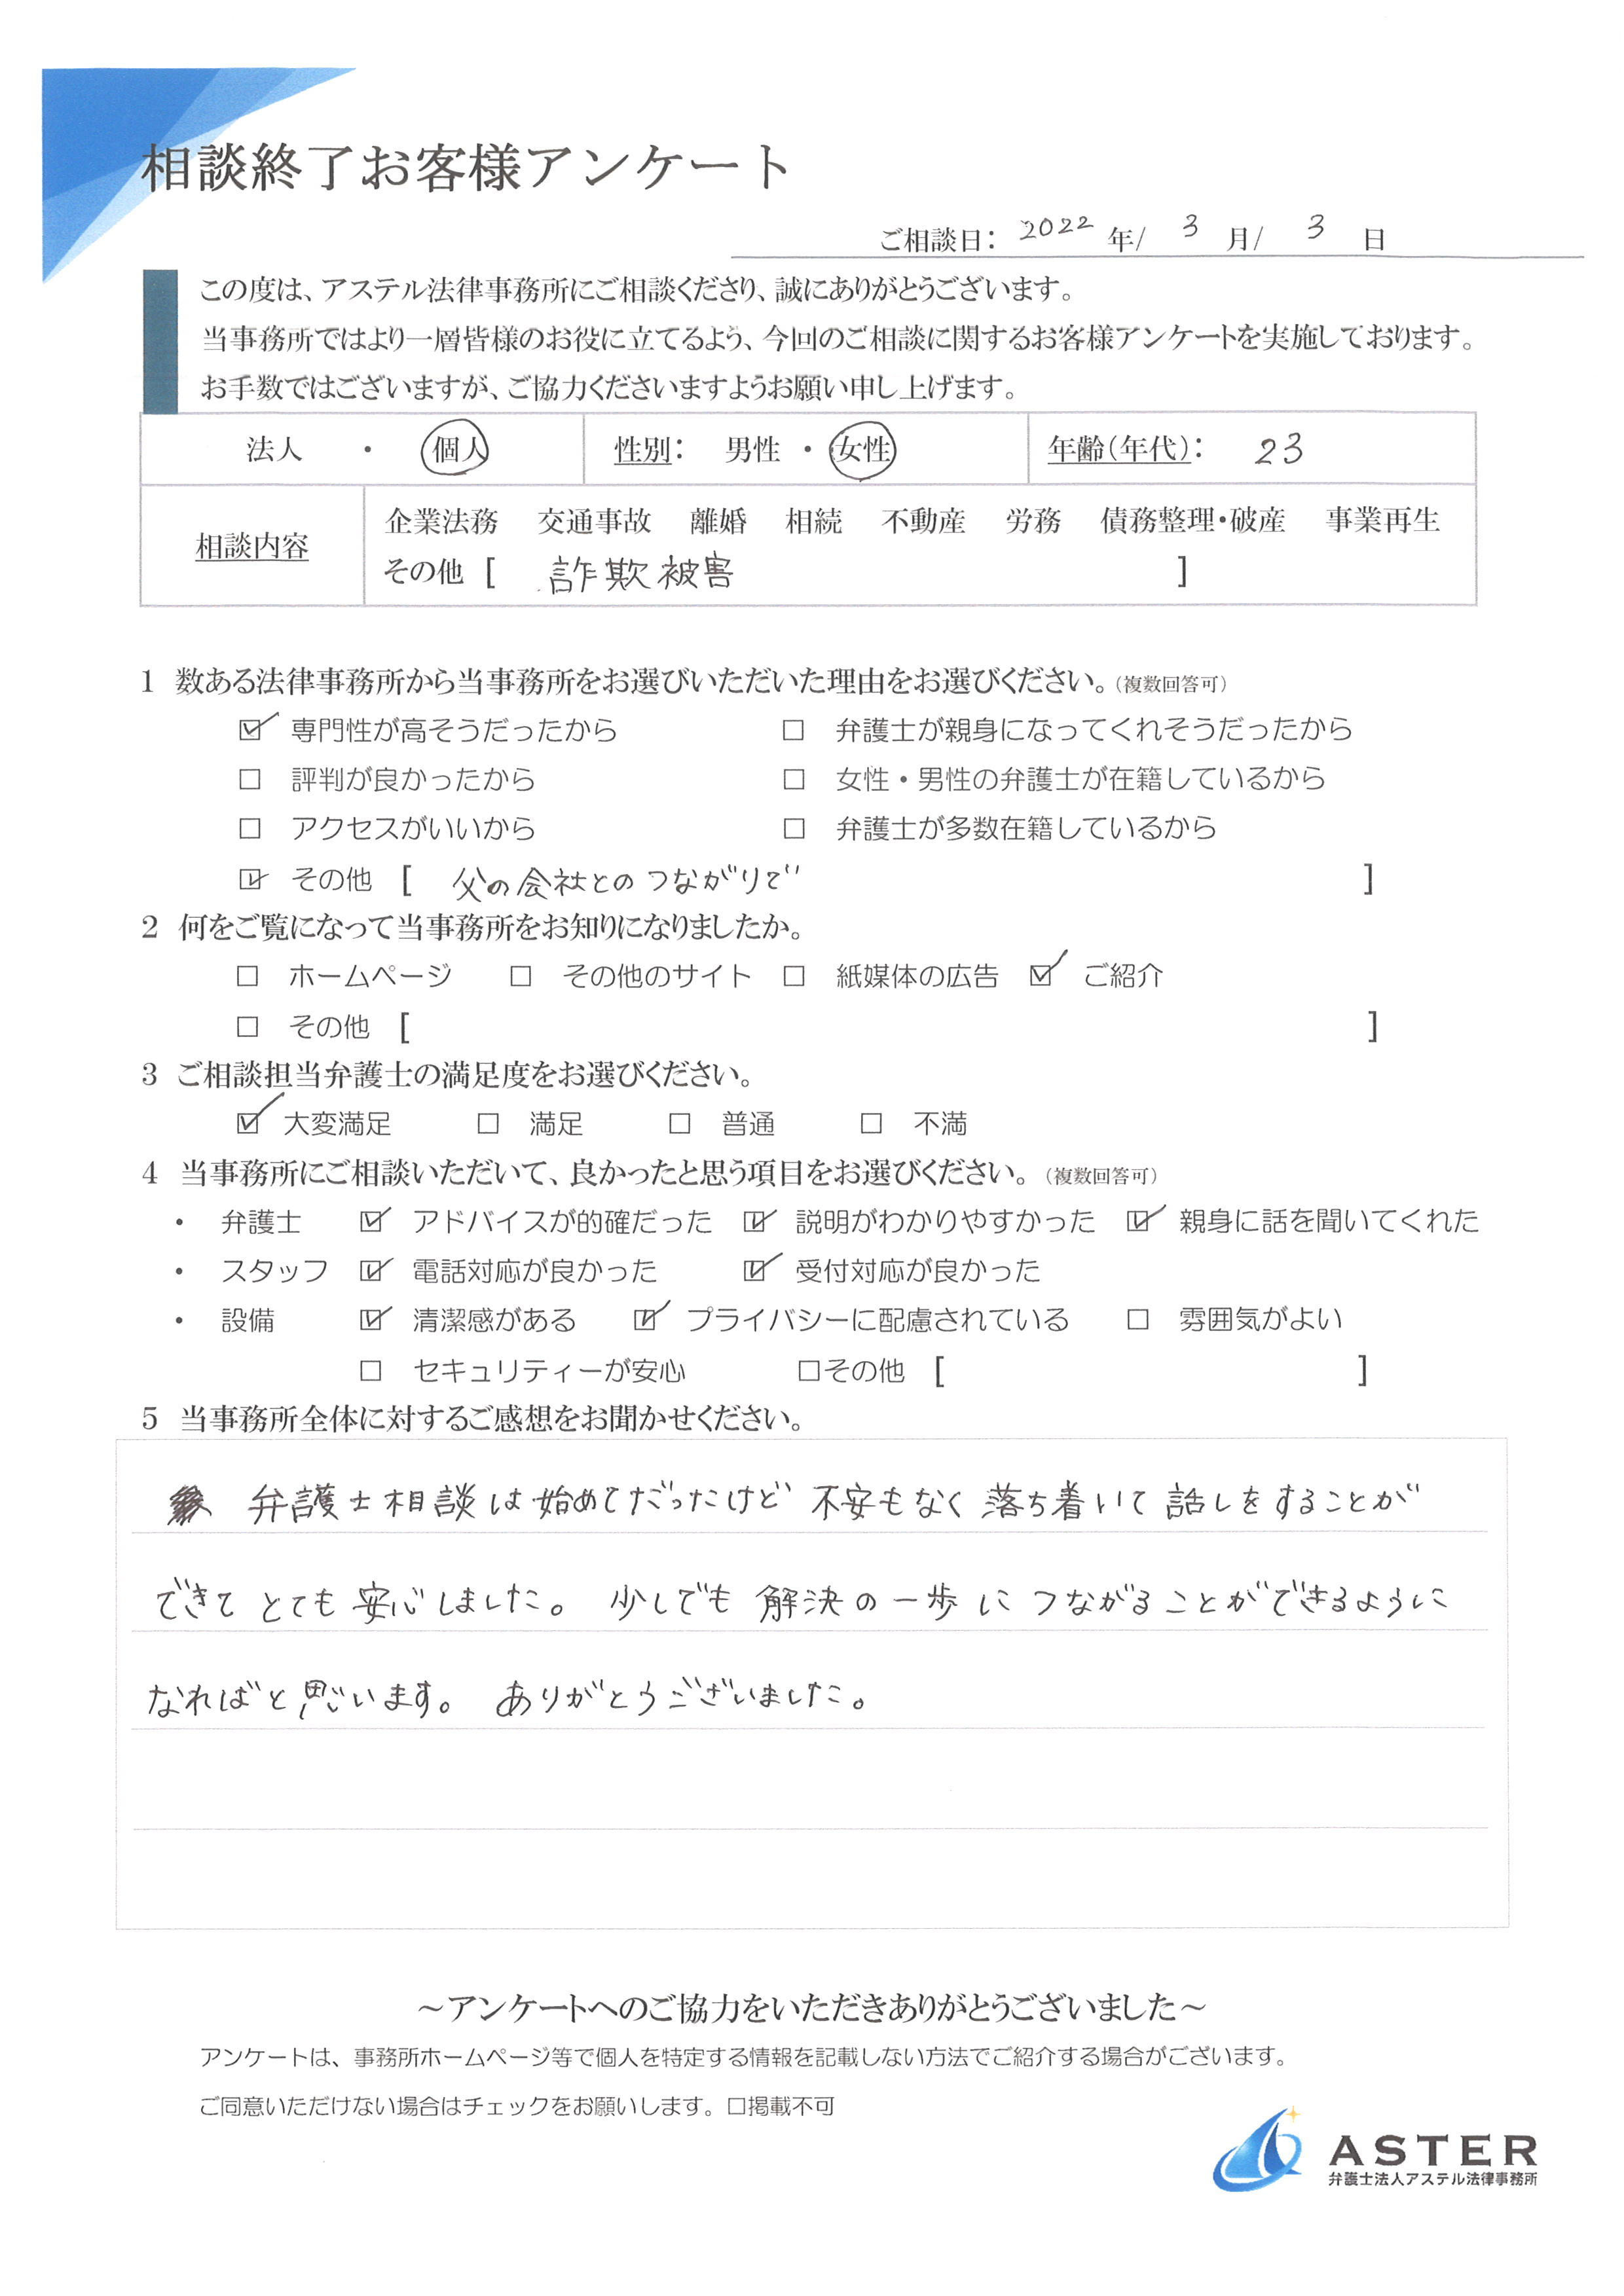 相談終了お客様アンケート
ご相談日： 2022 年/ 3 月/ 3 日
この度は、アステル法律事務所にご相談くださり、誠にありがとうございます。
当事務所ではより一層皆様のお役に立てるよう、今回のご相談に関するお客様アンケートを実施しております。
お手数ではございますが、ご協力くださいますようお願い申し上げます。
法人 ・ 個人 性別： 男性 ・ 女性 年齢(年代)： 23
相談内容 企業法務 交通事故 離婚 相続 不動産 労務 債務整理・破産 事業再生
その他 [ 詐欺被害 ]
1 数ある法律事務所から当事務所をお選びいただいた理由をお選びください。（複数回答可）
☑ 専門性が高そうだったから □ 弁護士が親身になってくれそうだったから
□ 評判が良かったから □ 女性・男性の弁護士が在籍しているから
□ アクセスがいいから □ 弁護士が多数在籍しているから
☑ その他 [ 父の会社とのつながりで ]
2 何をご覧になって当事務所をお知りになりましたか。
□ ホームページ □ その他のサイト □ 紙媒体の広告 ☑ ご紹介
□ その他 [ ]
3 ご相談担当弁護士の満足度をお選びください。
☑ 大変満足 □ 満足 □ 普通 □ 不満
4 当事務所にご相談いただいて、良かったと思う項目をお選びください。（複数回答可）
・ 弁護士 ☑ アドバイスが的確だった ☑ 説明がわかりやすかった ☑ 親身に話を聞いてくれた
・ スタッフ ☑ 電話対応が良かった ☑ 受付対応が良かった
・ 設備 ☑ 清潔感がある ☑ プライバシーに配慮されている □ 雰囲気がよい
□ セキュリティーが安心 □その他 [ ]
5 当事務所全体に対するご感想をお聞かせください。
弁護士相談は始めてだったけど 不安もなく 落ち着いて 話しをすることが
できて とても 安心しました。 少しでも 解決の一歩に つながることができるように
なればと思います。 ありがとうございました。
～アンケートへのご協力をいただきありがとうございました～
アンケートは、事務所ホームページ等で個人を特定する情報を記載しない方法でご紹介する場合がございます。
ご同意いただけない場合はチェックをお願いします。□掲載不可
ASTER
弁護士法人アステル法律事務所